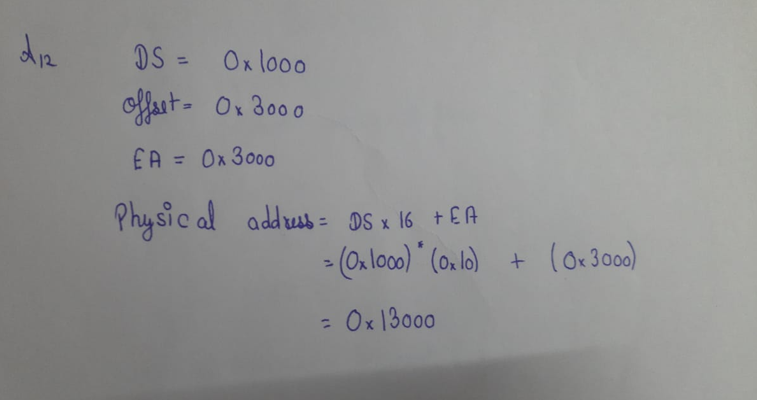 d12 DS = 0x1000
Offset = 0x3000
EA = 0x3000
Physical address = DS x 16 + EA
= (0x1000) * (0x10) + (0x3000)
= 0x13000